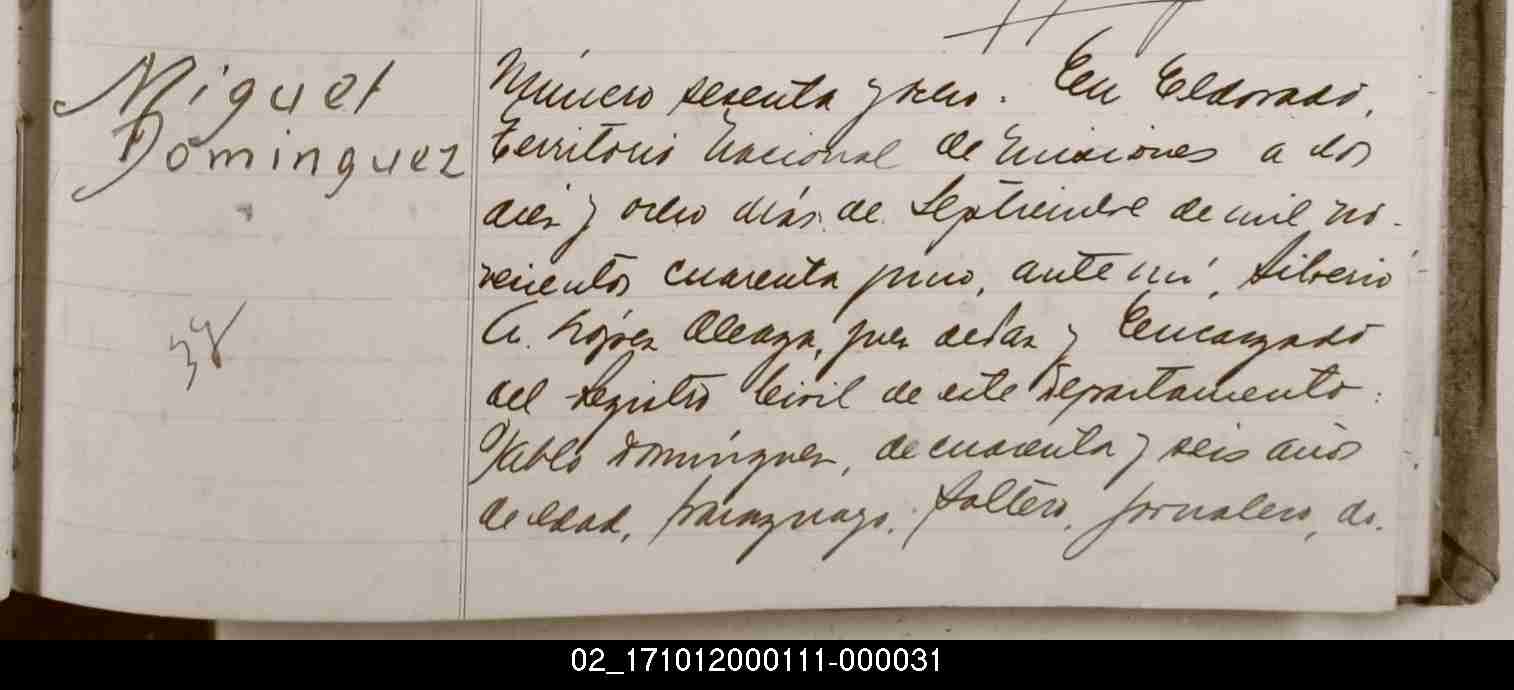 Miguel
Dominguez
38
Número sesenta y ocho. En Eldorado,
Territorio Nacional de Misiones a los
diez y ocho días de Septiembre de mil no-
vecientos cuarenta y uno, ante mí, Silverio
A. López Alcaza, juez de Paz y Encargado
del Registro Civil de este Departamento:
Pablo Domínguez, de cuarenta y seis años
de edad, paraguayo, soltero, jornalero, do-
02_171012000111-000031